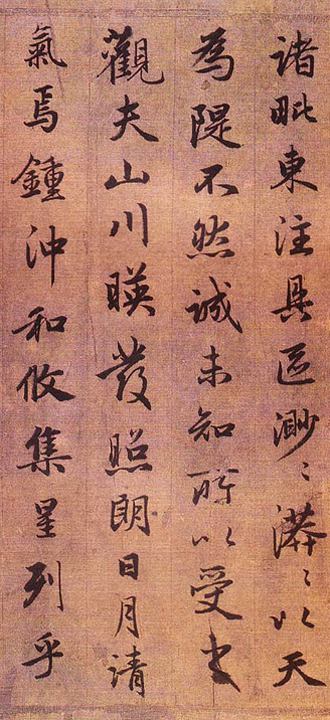 諸毗東注具區渺〻漭〻以天
為隄不然誠未知所以受之
觀夫山川暎發照朗日月清
氣焉鍾沖和攸集星列乎